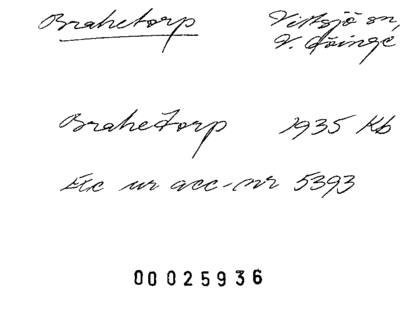 Brahetorp
Vittsjö sn,
V. Göinge
Brahetorp 1935 Kb
Exc ur acc-nr 5393
00025936